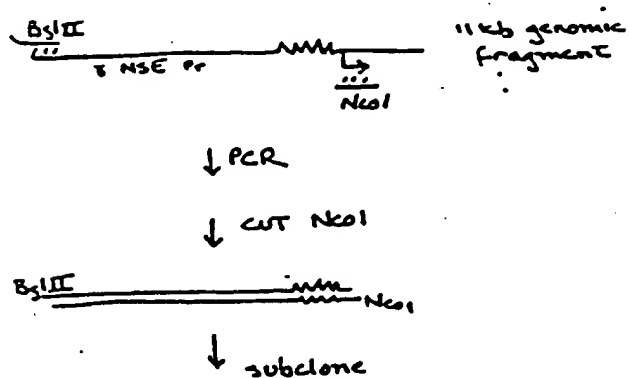 BglII
11 kb genomic
fragment
γ NSE Pr
NcoI
↓ PCR
↓ CUT NcoI
BglII
NcoI
↓ subclone